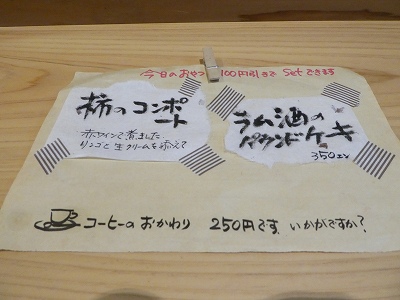 今日のおやつ 100円引きで Setできます
柿のコンポート
赤ワインで煮ました
リンゴと生クリームを添えて
ラム酒の
パウンドケーキ
350エン
コーヒーのおかわり 250円です いかがですか?